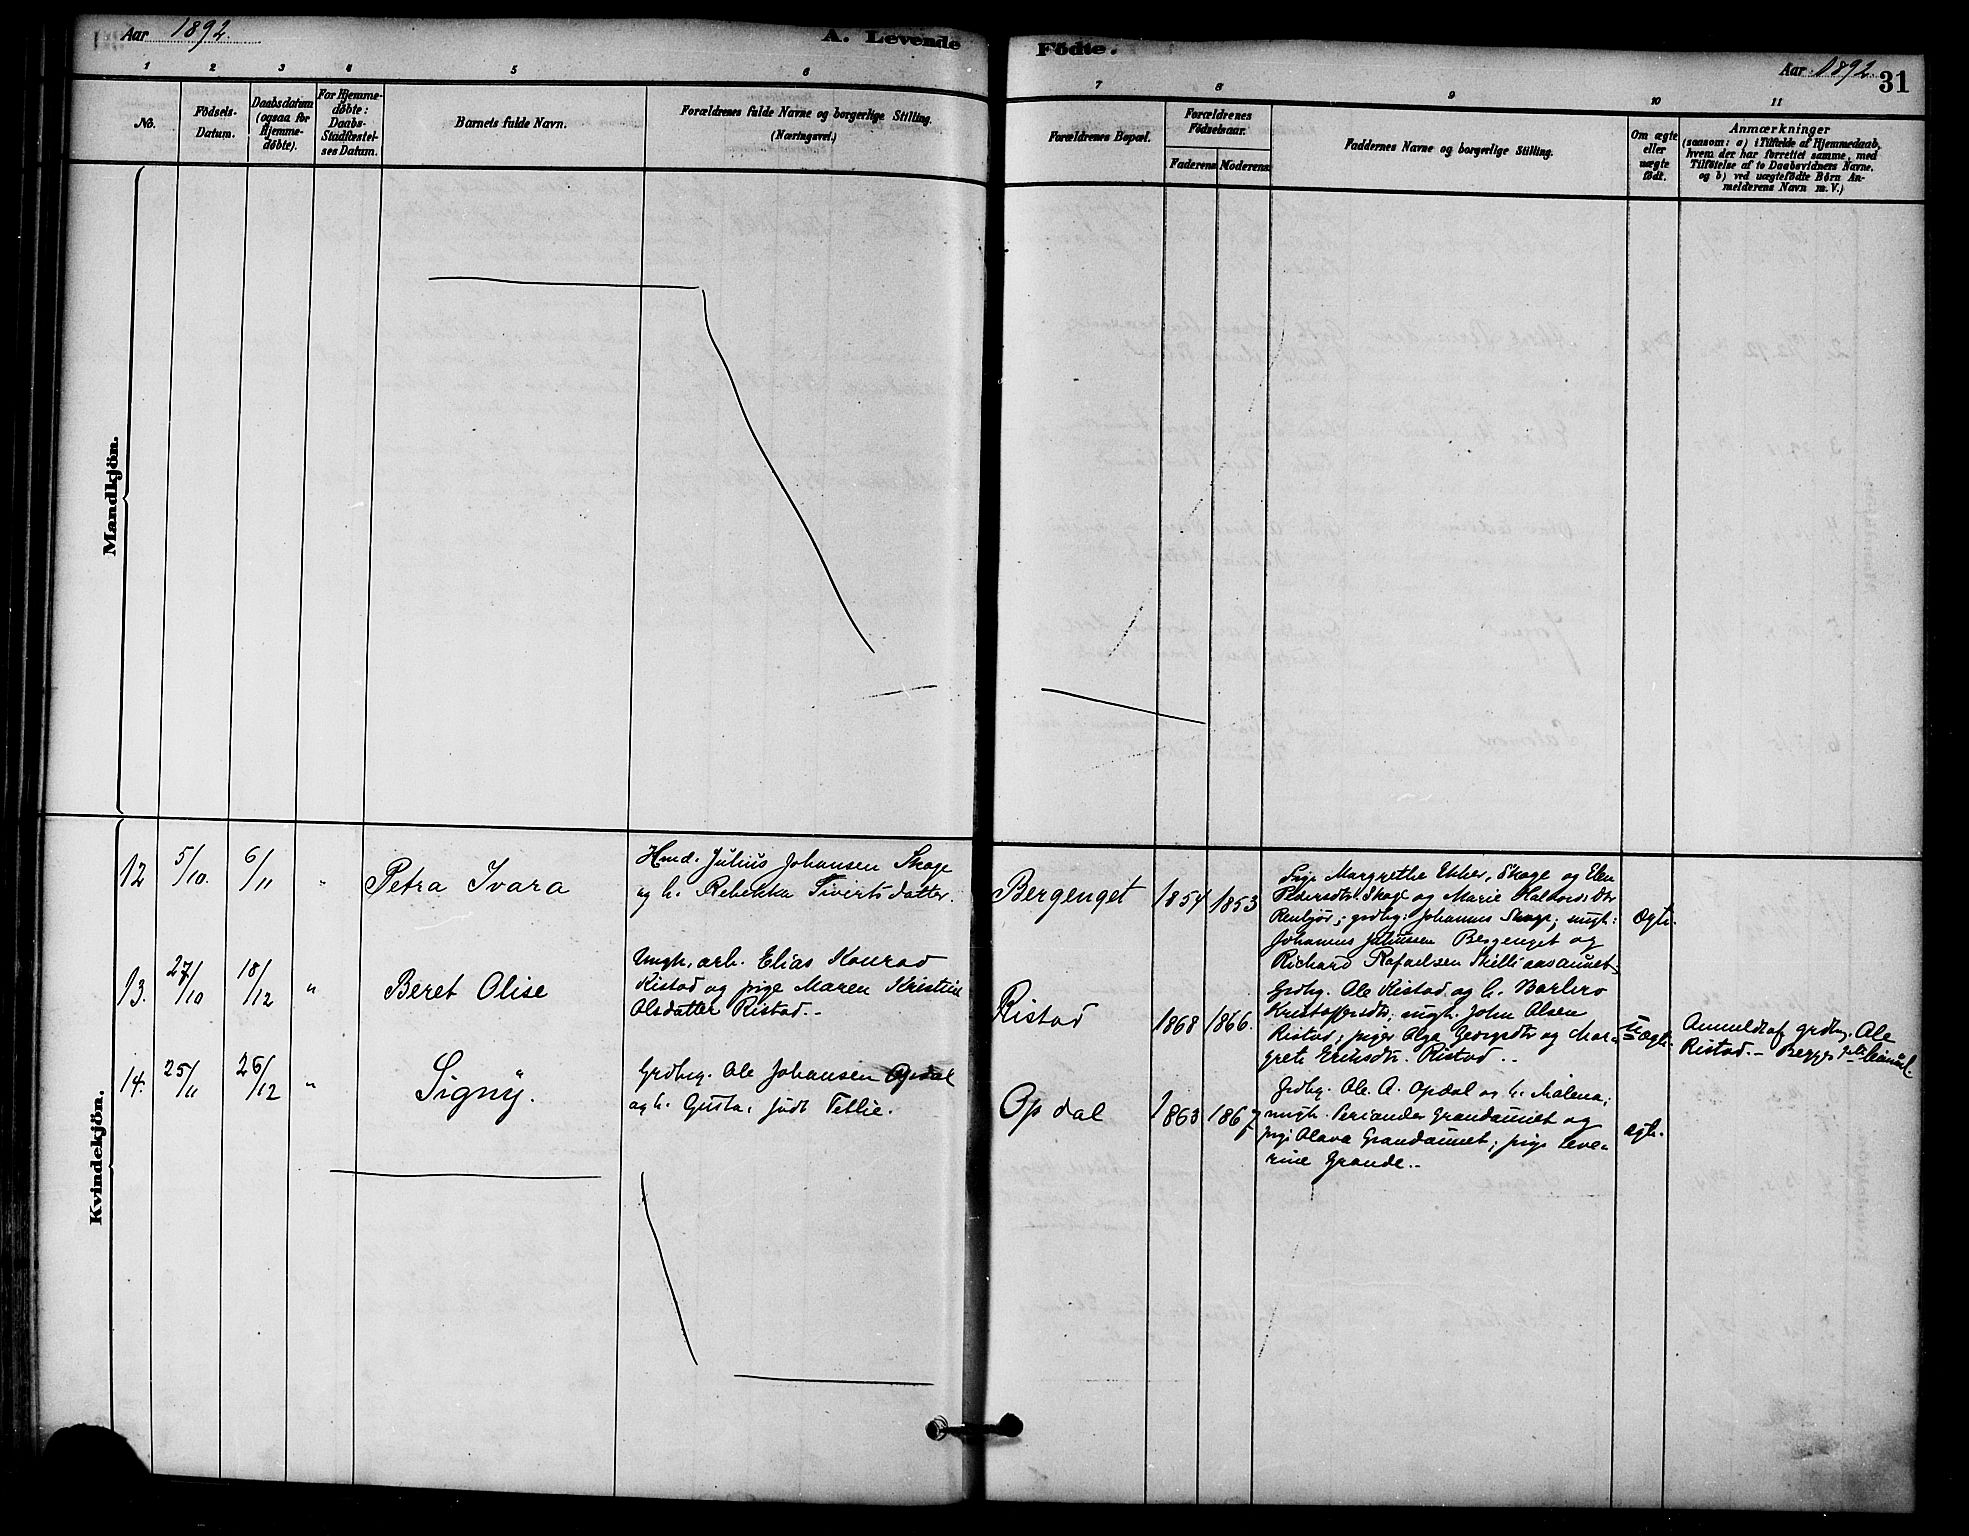 Aar 1892.
A. Levende
1 2 3 4 5 6
No.
Födsels-
Datum.
Daabsdatum
(ogsaa for
Hjemme-
døbte).
For Hjemme-
døbte:
Daabs-
Stadfæstel-
ses Datum.
Barnets fulde Navn.
Forældrenes fulde Navne og borgerlige Stilling.
(Næringsvei.)
Mandkjön.
Kvindekjön.
12 5/10. 6/11 " Petra Ivara
Hmd. Julius Johansen Skage
og h. Rebekka Sivertsdatter.
13. 27/10 18/12 " Beret Olise
Ungk. arb. Elias Konrad
Ristad og pige Maren Kristine
Olsdatter Ristad.-
14. 25/11 26/12 " Signy.
Grdbrg. Ole Johansen Opdal
og h. Gusta, født Tetlie.
Födte.
Aar 1892. 31
7 8 9 10 11
Forældrenes Bopæl.
Forældrenes
Födselsaar.
Faderens Moderens
Faddernes Navne og borgerlige Stilling.
Om ægte
eller
uægte
födt.
Anmærkninger
(saasom: a) i Tilfælde af Hjemmedaab,
hvem der har forrettet samme, med
Tilføtelse af to Daabsvidners Navne,
og b) ved uægtefödte Börn An-
melderens Navn m. V.)
Bergenget 1854 1853
Pige Margrethe Ekker, Skage og Elen
Pedersdtr. Skage og Marie Haldorsdtr
; grdbg: Johannes Skage; ungk:
Johannes Juliussen Bergenget og
Richard Rafaelsen
ægte.
Ristad 1868 1866.
Grdbg. Ole Ristad og h. Barbro
Kristoffersdtr; ungk. John Olsen
Ristad; piger Olga Georgsdtr og Mar-
grete Eriksdtr. Ristad..
uægte.
Anmeldt af grdbrg. Ole
Ristad.- Begges
Opdal 1863 1867
Grdbg. Ole A. Opdal og h. Malena;
ungk. Periander Grandaunet og
pige Olava Grandaunet; pige Seve-
rine Grande..
ægte.